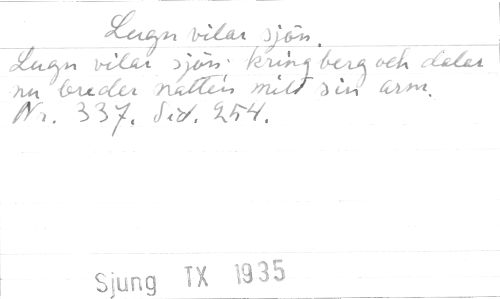 Lugn vilar sjön.
Lugn vilar sjön. kring berg och dalar
nu breder natten milt sin arm.
Nr. 337. Sid. 254.
Sjung TX 1935